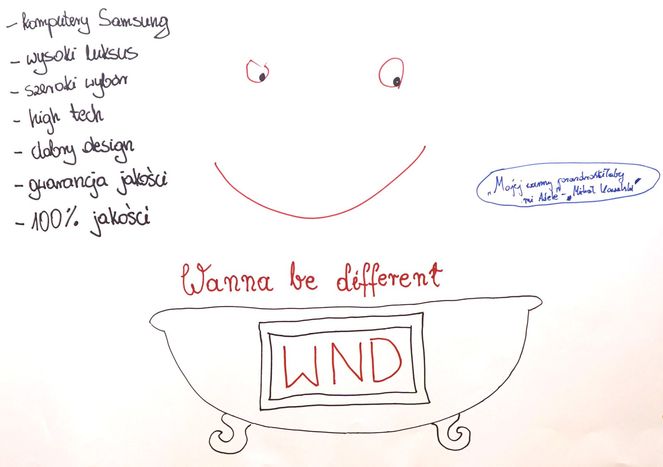 - komputery Samsung
- wysoki luksus
- szeroki wybór
- high tech
- dobry design
- gwarancja jakości
- 100% jakości
"Mojej wanny
mi Adele" - "Michał
Wanna be different
WND